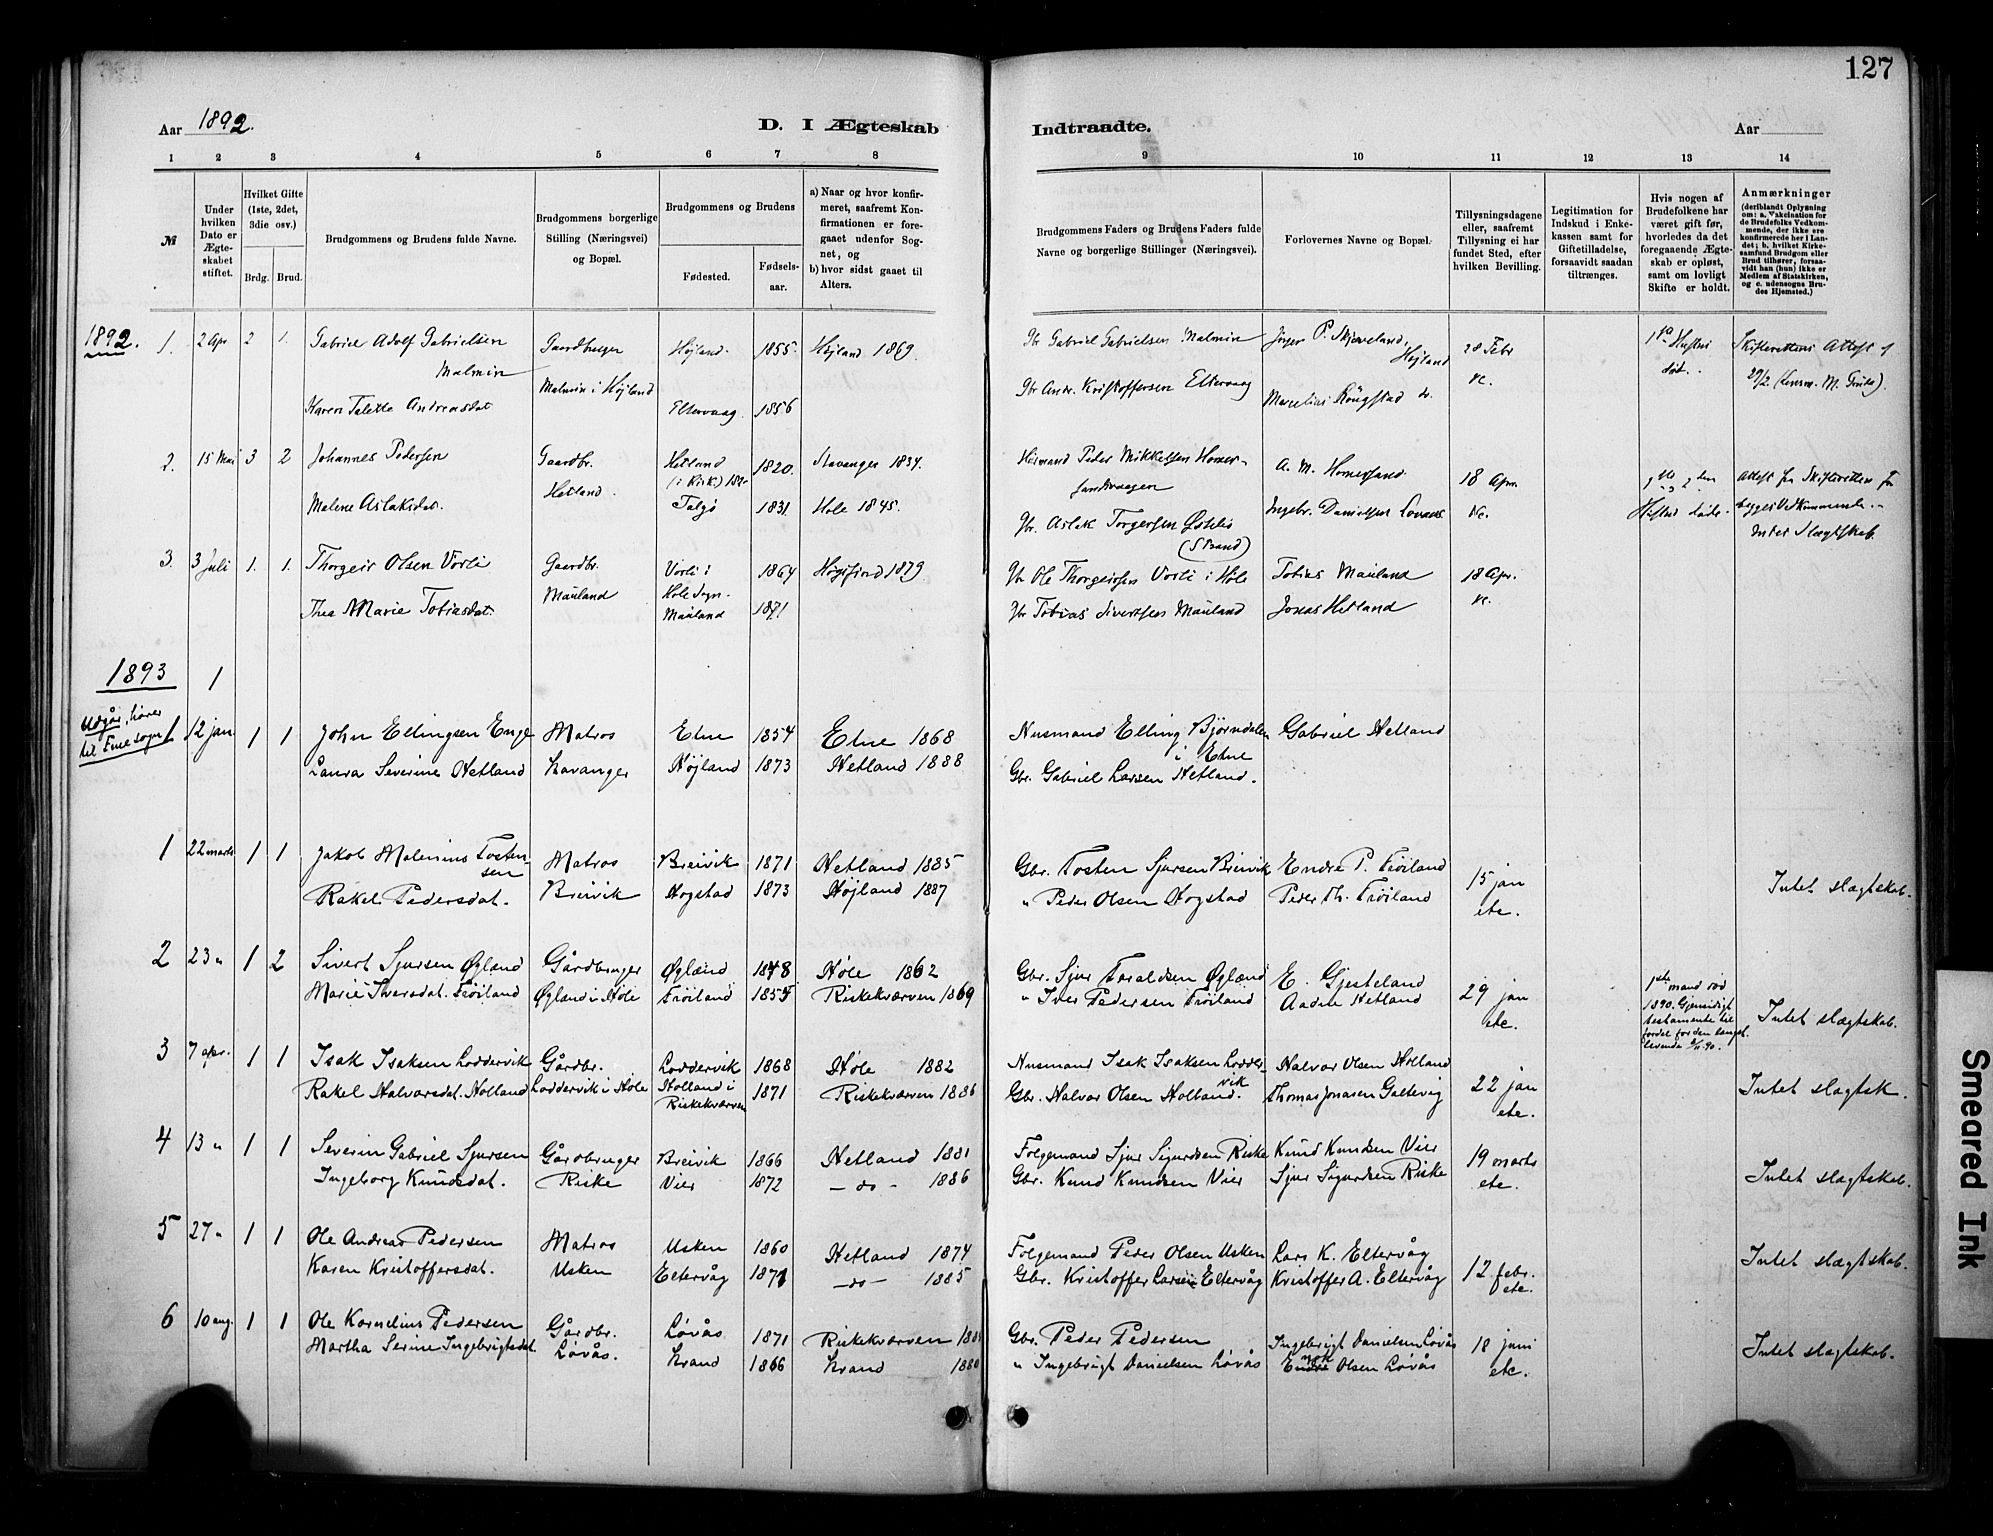 127
Aar 1892.
D. I Ægteskab
Indtraadte.
Aar
1 2 3 4 5 6 7 8
9 10 11 12 13 14
№
Under hvilken Dato er Ægteskabet stiftet.
Hvilket Gifte (1ste, 2det, 3die osv.)
Brdg. Brud.
Brudgommens og Brudens fulde Navne.
Brudgommens borgerlige Stilling (Næringsvei) og Bopæl.
Brudgommens og Brudens
Fødested.
Fødselsaar.
a) Naar og hvor konfirmeret, saafremt Konfirmationen er foregaaet udenfor Sognet, og
b) hvor sidst gaaet til Alters.
Brudgommens Faders og Brudens Faders fulde Navne og borgerlige Stillinger (Næringsvei).
Forlovernes Navne og Bopæl.
Tillysningsdagene eller, saafremt Tillysning ei har fundet Sted, efter hvilken Bevilling.
Legitimation for Indskud i Enkekassen samt for Giftetilladelse, forsaavidt saadan tiltrænges.
Hvis nogen af Brudefolkene har været gift før, hvorledes da det foregaaende Ægteskab er opløst, samt om lovligt Skifte er holdt.
Anmærkninger
(deriblandt Oplysning om: a. Vakcination for de Brudefolks Vedkommende, der ikke ere konfirmerede her i Landet; b. hvilket Kirkesamfund Brudgom eller Brud tilhører, forsaavidt han (hun) ikke er Medlem af Statskirken, og c. udensogns Brudes Hjemsted.)
1892.
1. 2 Apr 2 1. Gabriel Adolf Gabrielsen Malmin Gaardbruger Højland. 1855. Højland 1869. Gbr Gabriel Gabrielsen Malmin Jørgen P. Skjæveland, Højland 28 Febr 1ste Hustru død. Skifterettens Attest af
Karen Talette Andreasdat Malmin i Højland Eltervaag. 1856 Gbr Andr. Kristoffersen Eltervaag Marselius Rougstad do. 29/2
2. 15 Mai 3 2 Johannes Pedersen Gaardbr. Hetland 1820. Stavanger 1834. Husmand Peder Mikkelsen Homersandvaagen A. M. Homersand 18 Apr. Attest fra Skifteretten
Malene Aslaksdat. Hetland. Talgø 1831. Hole 1845. Gbr. Aslak Torgersen Østhus (Strand) Ingebr. Danielsen Lovaas etc. Intet Slægtskab.
3. 3 Juli 1. 1. Thorgeir Olsen Vorli Gaardbr. Vorli i Hole Sogn. 1864 Høgsfjord 1879. Gbr Ole Thorgeirsen Vorli i Hole Tobias Mauland 18 Apr.
Thea Marie Tobiasdat. Mauland Mauland 1871 Gbr Tobias Sivertsen Mauland Jonas Hetland
1893 1
Udgår, hører til Frue sogn
1 12 jan. 1 1 John Ellingsen Enge Matros Etne 1854 Etne 1868 Husmand Elling Bjørndalen i Etne Gabriel Hetland
Laura Severine Hetland Stavanger Højland 1873 Hetland 1888 Gbr. Gabriel Larsen Hetland.
1 22 marts 1 1 Jakob Malenius Tostensen Matros Breivik 1871 Hetland 1885 Gbr. Tosten Sjursen Breivik Endre P. Frøiland 15 jan
Rakel Pedersdat. Breivik Hogstad 1873 Højland 1887 " Peder Olsen Hogstad Peder Th. Frøiland etc. Intet slægtskab.
2 23 " 1 2 Sivert Sjursen Øglænd Gårdbruger Øglænd 1848 Høle 1862 Gbr. Sjur Taraldsen Øglænd E. Gjesteland 29 jan 1ste mand død 1890. Gjensidigt testamente til fordel for den længst levende
Marie Iversdat. Frøiland Øglænd i Høle Frøiland 1854 Riskekværven 1869 " Iver Pedersen Frøiland Aadne Hetland etc. Intet slægtskab.
3 7 apr. 1 1 Isak Isaksen Loddervik Gårdbr. Loddervik 1868 Høle 1882 Husmand Isak Isaksen Loddervik Halvor Olsen Holland 22 jan
Rakel Halvorsdat. Holland Loddervik i Høle Holland i Riskekværven 1871 Riskekværven 1886 Gbr. Halvor Olsen Holland. Thomas Jonasen Galtevig etc. Intet slægtsk.
4 13 " 1 1 Severin Gabriel Sjursen Gårdbruger Breivik 1866 Hetland 1881 Folgemand Sjur Sigurdsen Riske Knud Knudsen Vier 19 marts
Ingeborg Knudsdat. Riske Vier 1872 — do - 1886 Gbr. Knud Knudsen Vier Sjur Sigurdsen Riske etc. Intet slægtskab.
5 27 " 1 1 Ole Andreas Pedersen Matros Usken 1860 Hetland 1874 Folgemand Peder Olsen Usken Lars K. Eltervåg 12 febr.
Karen Kristoffersdat. Usken Eltervåg 1871 — do — 1885 Gbr. Kristoffer Larsen Eltervåg Kristoffer A. Eltervåg etc. Intet slægtskab.
6 10 aug. 1 1 Ole Kornelius Pedersen Gårdbr. Løvås 1871 Riskekværven Gbr. Peder Pedersen Ingebrigt Danielsen Løvås 18 juni
Martha Serine Ingebrigtsdat. Løvås. Strand 1866 Strand 1880 " Ingebrigt Danielsen Løvås Olsen Løvås etc. Intet slægtskab.
Smeared Ink